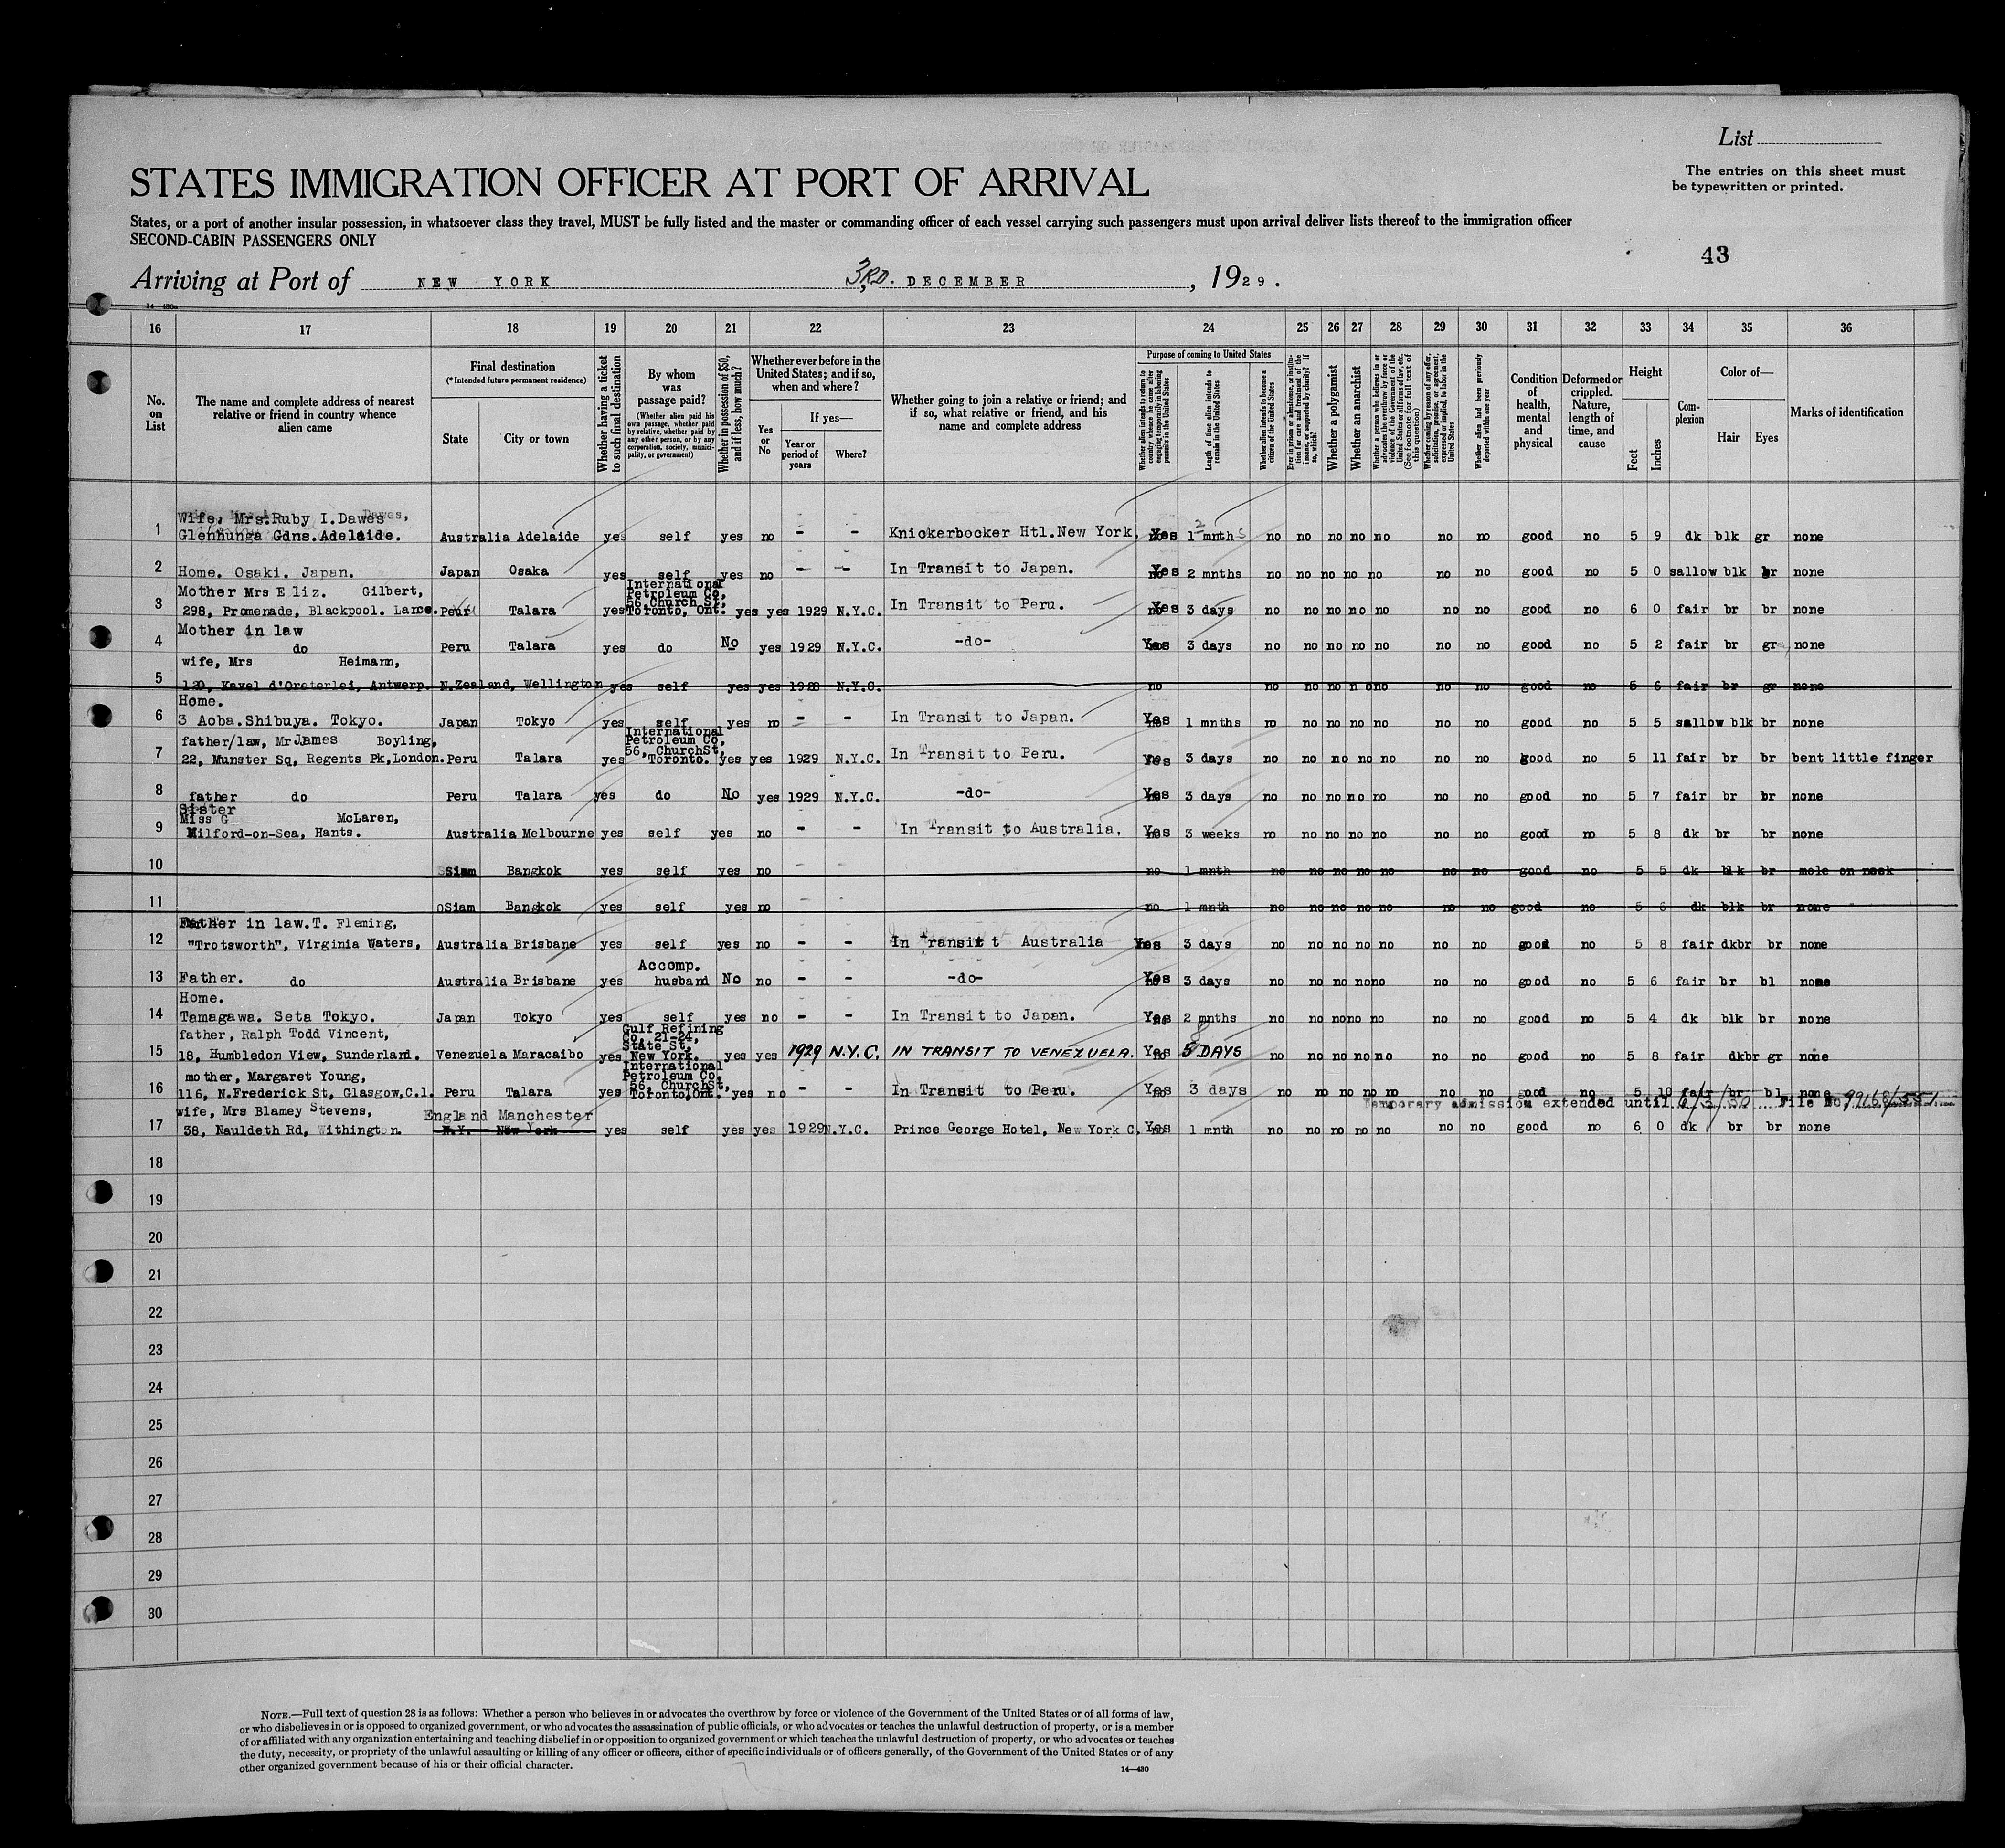 List
The entries on this sheet must
be typewritten or printed.
STATES IMMIGRATION OFFICER AT PORT OF ARRIVAL
States, or a port of another insular possession, in whatsoever class they travel, MUST be fully listed and the master or commanding officer of each vessel carrying such passengers must upon arrival deliver lists thereof to the immigration officer
SECOND-CABIN PASSENGERS ONLY
43
Arriving at Port of NEW YORK 3RD. DECEMBER, 1929.
14-430a
16 17 18 19 20 21 22 23 24 25 26 27 28 29 30 31 32 33 34 35 36
No. on List
The name and complete address of nearest relative or friend in country whence alien came
Final destination
(*Intended future permanent residence)
State
City or town
Whether having a ticket to such final destination
By whom was passage paid?
(Whether alien paid his own passage, whether paid by relative, whether paid by any other person, or by any corporation, society, municipality, or government)
Whether in possession of $50, and if less, how much?
Whether ever before in the United States; and if so, when and where?
Yes or No
If yes—
Year or period of years
Where?
Whether going to join a relative or friend; and if so, what relative or friend, and his name and complete address
Purpose of coming to United States
Whether alien intends to return to country whence he came after engaging temporarily in laboring pursuits in the United States
Length of time alien intends to remain in the United States
Whether alien intends to become a citizen of the United States
Ever in prison or almshouse, or institution for care and treatment of the insane, or supported by charity? If so, which?
Whether a polygamist
Whether an anarchist
Whether a person who believes in or advocates the overthrow by force or violence of the Government of the United States or all forms of law, etc. (See footnote for full text of this question)
Whether coming by reason of any offer, solicitation, promise, or agreement, expressed or implied, to labor in the United States
Whether alien had been previously deported within one year
Condition of health, mental and physical
Deformed or crippled. Nature, length of time, and cause
Height
Feet
Inches
Complexion
Color of—
Hair
Eyes
Marks of identification
Wife, Mrs. Ruby I. Dawes
1 Glenhunga Gdns. Adelaide. Australia Adelaide yes self yes no - - Knickerbocker Htl. New York. Yes 2 mnths no no no no no no no good no 5 9 dk blk gr none
2 Home. Osaki. Japan. Japan Osaka yes self yes no - - In Transit to Japan. Yes 2 mnths no no no no no no no good no 5 0 sallow blk br none
Mother Mrs Eliz. Gilbert, International Petroleum Co, 56, Church St,
3 298, Promenade, Blackpool. Lancs. Peru Talara yes Toronto, Ont. yes yes 1929 N.Y.C. In Transit to Peru. Yes 3 days no no no no no no no good no 6 0 fair br br none
Mother in law
4 do Peru Talara yes do No yes 1929 N.Y.C. -do- Yes 3 days no no no no no no no good no 5 2 fair br gr none
wife, Mrs Heimann,
5 120, Kavel d'Oreterlei, Antwerp. N.Zealand, Wellington yes self yes yes 1928 N.Y.C. no no no no no no no no good no 5 6 fair br gr none
Home.
6 3 Aoba. Shibuya. Tokyo. Japan Tokyo yes self yes no - - In Transit to Japan. Yes 1 mnths no no no no no no no good no 5 5 sallow blk br none
father/law, Mr James Boyling, International Petroleum Co, 56, ChurchSt,
7 22, Munster Sq, Regents Pk, London. Peru Talara yes Toronto. yes yes 1929 N.Y.C. In Transit to Peru. Yes 3 days no no no no no no no good no 5 11 fair br br bent little finger
8 father do Peru Talara yes do No yes 1929 N.Y.C. -do- Yes 3 days no no no no no no no good no 5 7 fair br br none
Sister
Miss G McLaren,
9 Milford-on-Sea, Hants. Australia Melbourne yes self yes no - - In Transit to Australia. Yes 3 weeks no no no no no no no good no 5 8 dk br br none
10 Siam Bangkok yes self yes no no 1 mnth no no no no no no no good no 5 5 dk blk br mole on neck
11 Siam Bangkok yes self yes no no 1 mnth no no no no no no no good no 5 6 dk blk br none
Father in law. T. Fleming,
12 "Trotsworth", Virginia Waters, Australia Brisbane yes self yes no - - In transit t Australia Yes 3 days no no no no no no no good no 5 8 fair dkbr br none
13 Father. do Australia Brisbane yes Accomp. husband No no - - -do- Yes 3 days no no no no no no no good no 5 6 fair br bl none
Home.
14 Tamagawa. Seta Tokyo. Japan Tokyo yes self yes no - - In Transit to Japan. Yes 2 mnths no no no no no no no good no 5 4 dk blk br none
father, Ralph Todd Vincent, Gulf Refining Co, 21-24, State St,
15 18, Humbledon View, Sunderland. Venezuela Maracaibo yes New York. yes yes 1929 N.Y.C. IN TRANSIT TO VENEZUELA. Yes 8 DAYS no no no no no no no good no 5 8 fair dkbr gr none
mother, Margaret Young, International Petroleum Co, 56, ChurchSt,
16 116, N.Frederick St, Glasgow,C.1. Peru Talara yes Toronto,Ont. yes no - - In Transit to Peru. Yes 3 days no no no no no no no good no 5 10 fair br bl none
Temporary admission extended until 6/3/30 File No 99168/551
wife, Mrs Blamey Stevens, England Manchester
17 38, Nauldeth Rd, Withington. N.Y. New York yes self yes yes 1929 N.Y.C. Prince George Hotel, New York C. Yes 1 mnth no no no no no no no good no 6 0 dk br br none
18
19
20
21
22
23
24
25
26
27
28
29
30
NOTE.—Full text of question 28 is as follows: Whether a person who believes in or advocates the overthrow by force or violence of the Government of the United States or of all forms of law,
or who disbelieves in or is opposed to organized government, or who advocates the assassination of public officials, or who advocates or teaches the unlawful destruction of property, or is a member
of or affiliated with any organization entertaining and teaching disbelief in or opposition to organized government or which teaches the unlawful destruction of property, or who advocates or teaches
the duty, necessity, or propriety of the unlawful assaulting or killing of any officer or officers, either of specific individuals or of officers generally, of the Government of the United States or of any
other organized government because of his or their official character.
14—430